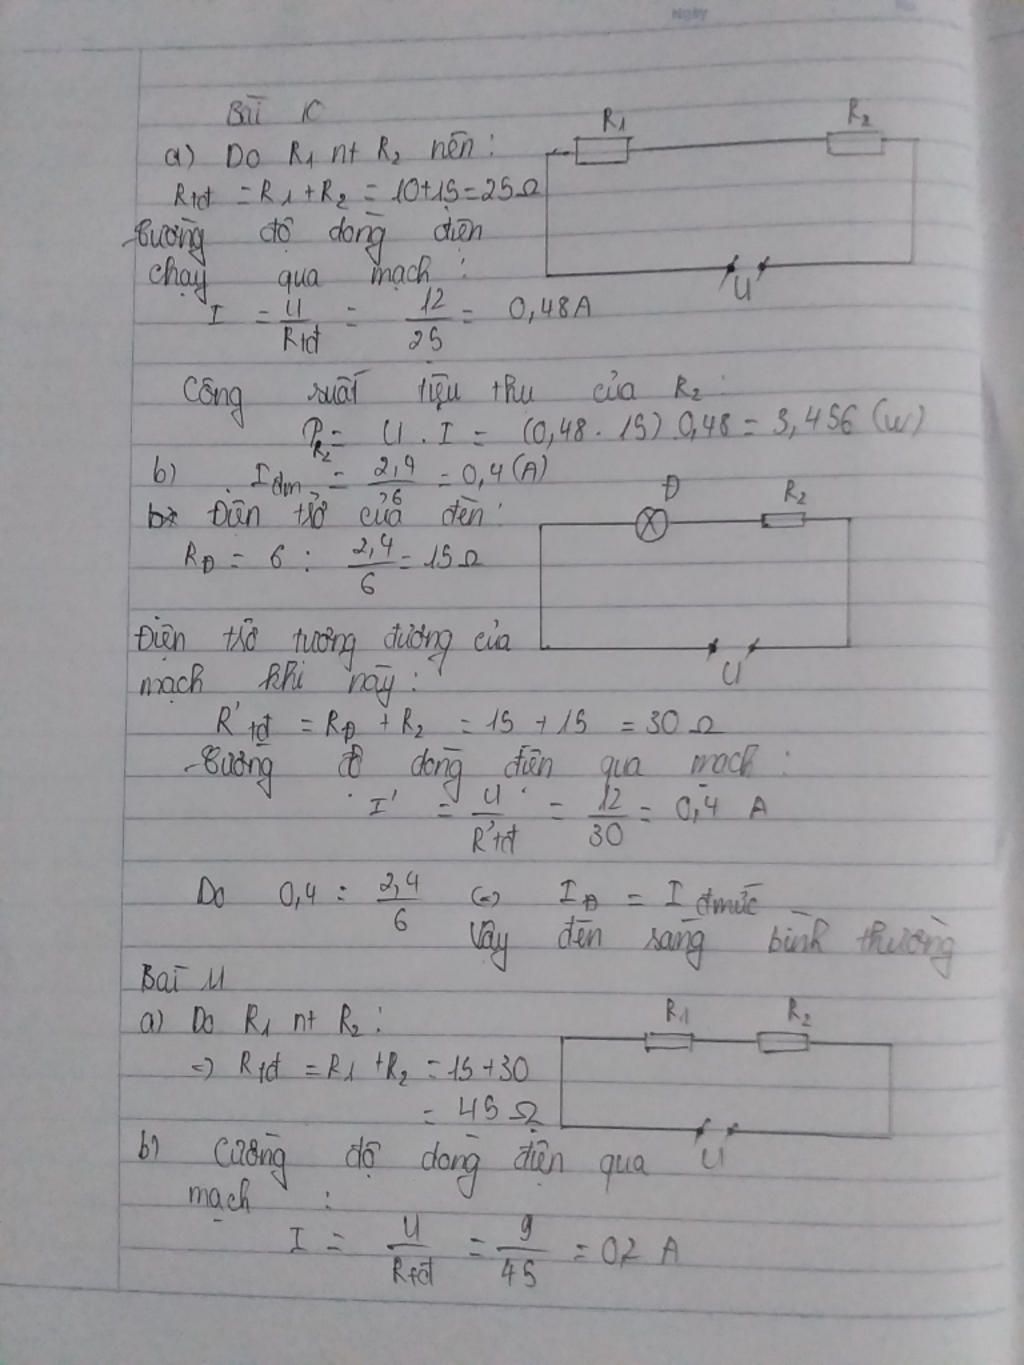 Ngày
Bài 10
R1 R2
a) Do R1 nt R2 nên:
Rtđ = R1 + R2 = 10+15 = 25Ω
Cường độ dòng điện
chạy qua mạch:
U
I = U/Rtđ = 12/25 = 0,48A
Công suất tiêu thụ của R2:
PR2 = U . I = (0,48 . 15) 0,48 = 3,456 (W)
b) Iđm = 2,4/6 = 0,4 (A)
Đ R2
Điện trở của đèn:
RĐ = 6 : 2,4/6 = 15Ω
Điện trở tương đương của
mạch khi này:
U
R'tđ = RĐ + R2 = 15 + 15 = 30Ω
Cường độ dòng điện qua mạch:
I' = U/R'tđ = 12/30 = 0,4 A
Do 0,4 = 2,4/6 (=) IĐ = I đmức
Vậy đèn sáng bình thường
Bài 11
R1 R2
a) Do R1 nt R2:
=) Rtđ = R1 + R2 = 15 + 30
= 45 Ω
U
b) Cường độ dòng điện qua
mạch :
I = U/Rtđ = 9/45 = 0,2 A